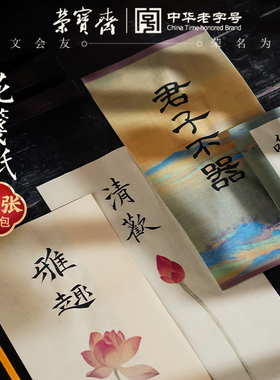 榮寶齋
中华老字号
China Time-honored Brand
文会友
荣名为
花笺纸
张
包
君子不器
清歡
雅趣